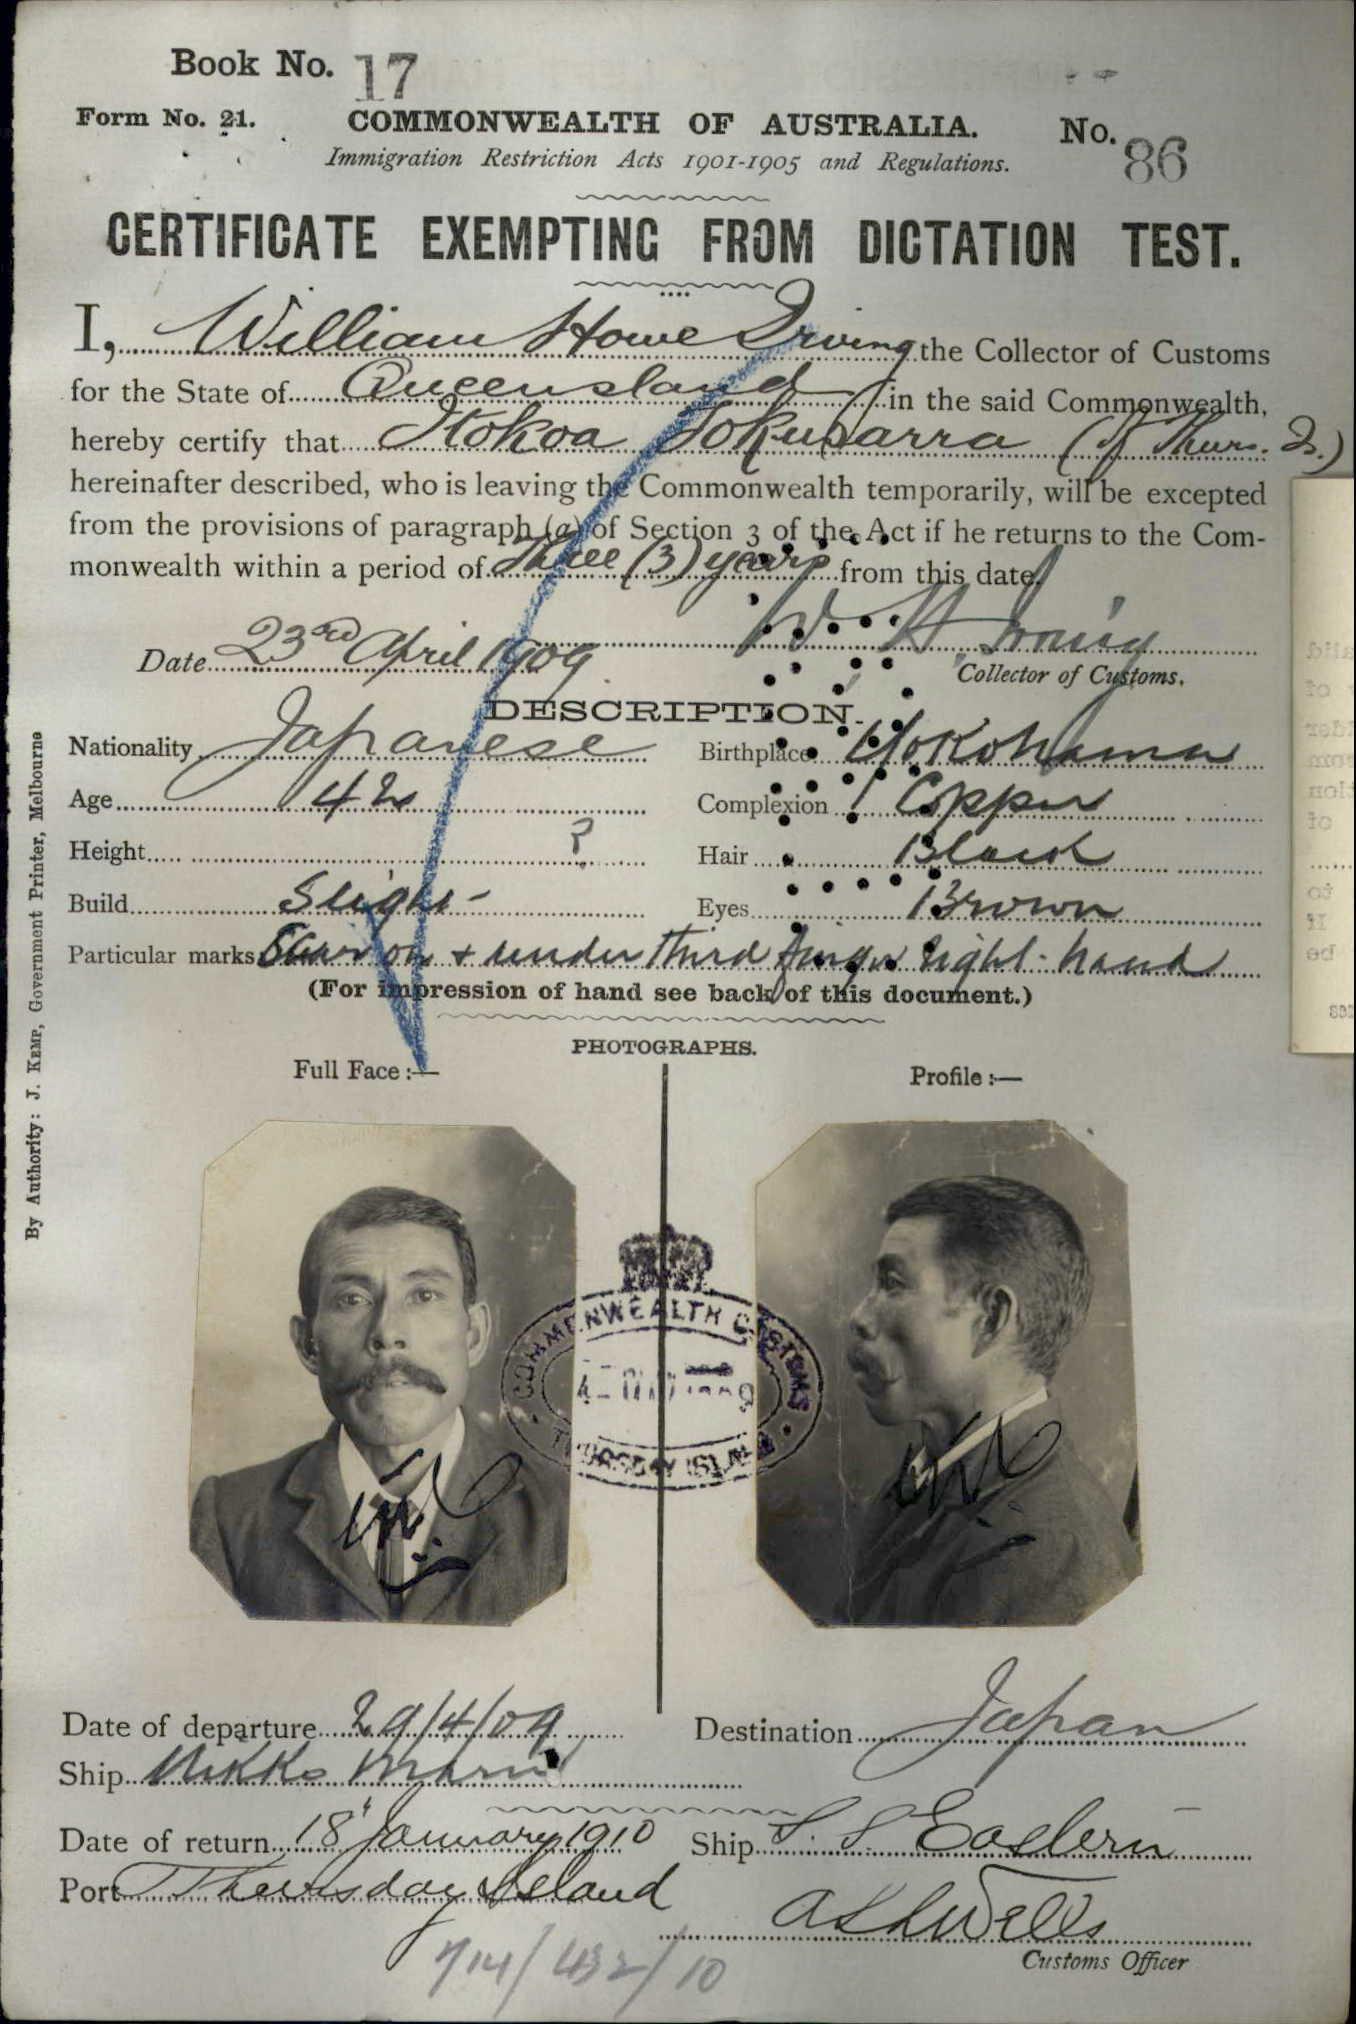 Book No. 17
Form No. 21. COMMONWEALTH OF AUSTRALIA. No. 86
Immigration Restriction Acts 1901-1905 and Regulations.
CERTIFICATE EXEMPTING FROM DICTATION TEST.
I, William Howe Irving the Collector of Customs
for the State of Queensland in the said Commonwealth,
hereby certify that Itokoa Tokusarra (of Thurs. Is.)
hereinafter described, who is leaving the Commonwealth temporarily, will be excepted
from the provisions of paragraph (a) of Section 3 of the Act if he returns to the Com-
monwealth within a period of Three (3) years from this date.
W H Irving
Date 23rd April 1909 Collector of Customs.
DESCRIPTION.
Nationality Japanese Birthplace Yokohama
Age 42 Complexion Copper
Height ? Hair Black
Build Slight Eyes Brown
Particular marks Scar on + under third finger right hand
(For impression of hand see back of this document.)
PHOTOGRAPHS.
Full Face :— Profile :—
COMMONWEALTH CUSTOMS
THURSDAY ISLAND
Date of departure 29/4/09 Destination Japan
Ship Nikko Maru
Date of return 18 January 1910 Ship S. S. Eastern
Port Thursday Island
Customs Officer
714/432/10
By Authority: J. KEMP, Government Printer, Melbourne